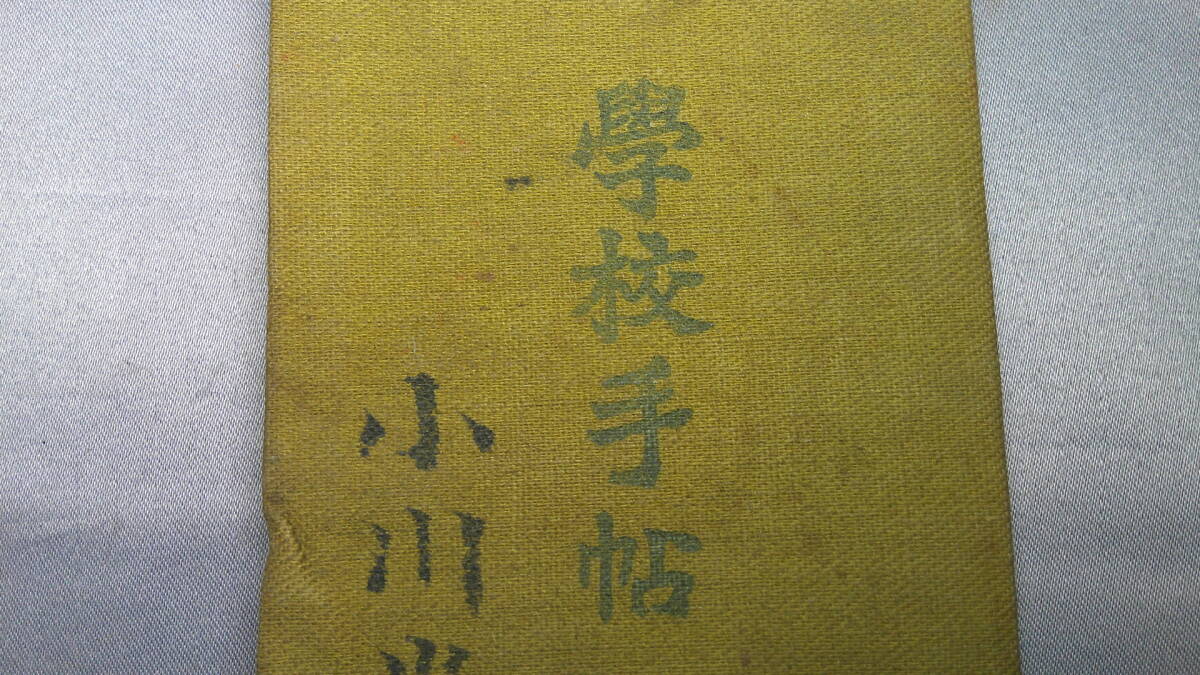 學校手帖
小川